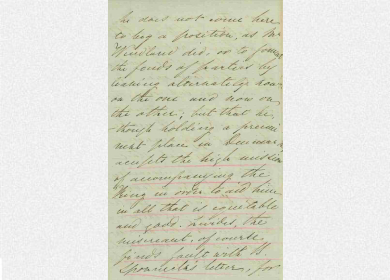 he does not come here
to beg a position, as Mr
did, or to
the funds of parties by
leaning alternately now
on the one and now on
the other; but that he,
though holding a promi
nent place in
accepts the high mission
of accompanying the
King in order to aid him
in all that is equitable
and good. Besides, the
miscreant, of course,
finds fault with
letters, for